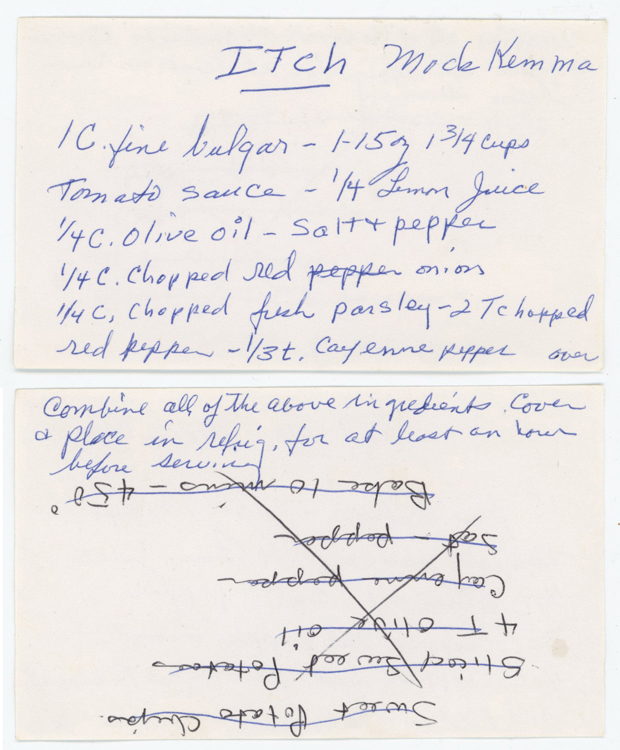 Itch Mock Kemma
1 C. fine bulgar - 1-15 oz 1 3/4 cups
Tomato sauce - 1/4 Lemon Juice
1/4 C. Olive oil - Salt + pepper
1/4 C. Chopped red pepper onion
1/4 C. Chopped fresh parsley - 2 T chopped
red pepper - 1/3 t. Cayenne pepper over
Combine all of the above ingredients. Cover
& place in refrig. for at least an hour
before serving
Sweet Potato Chips
Sliced Sweet Potatoes
4 T Olive oil
Cayenne pepper
Salt - pepper
Bake 10 mins - 450°